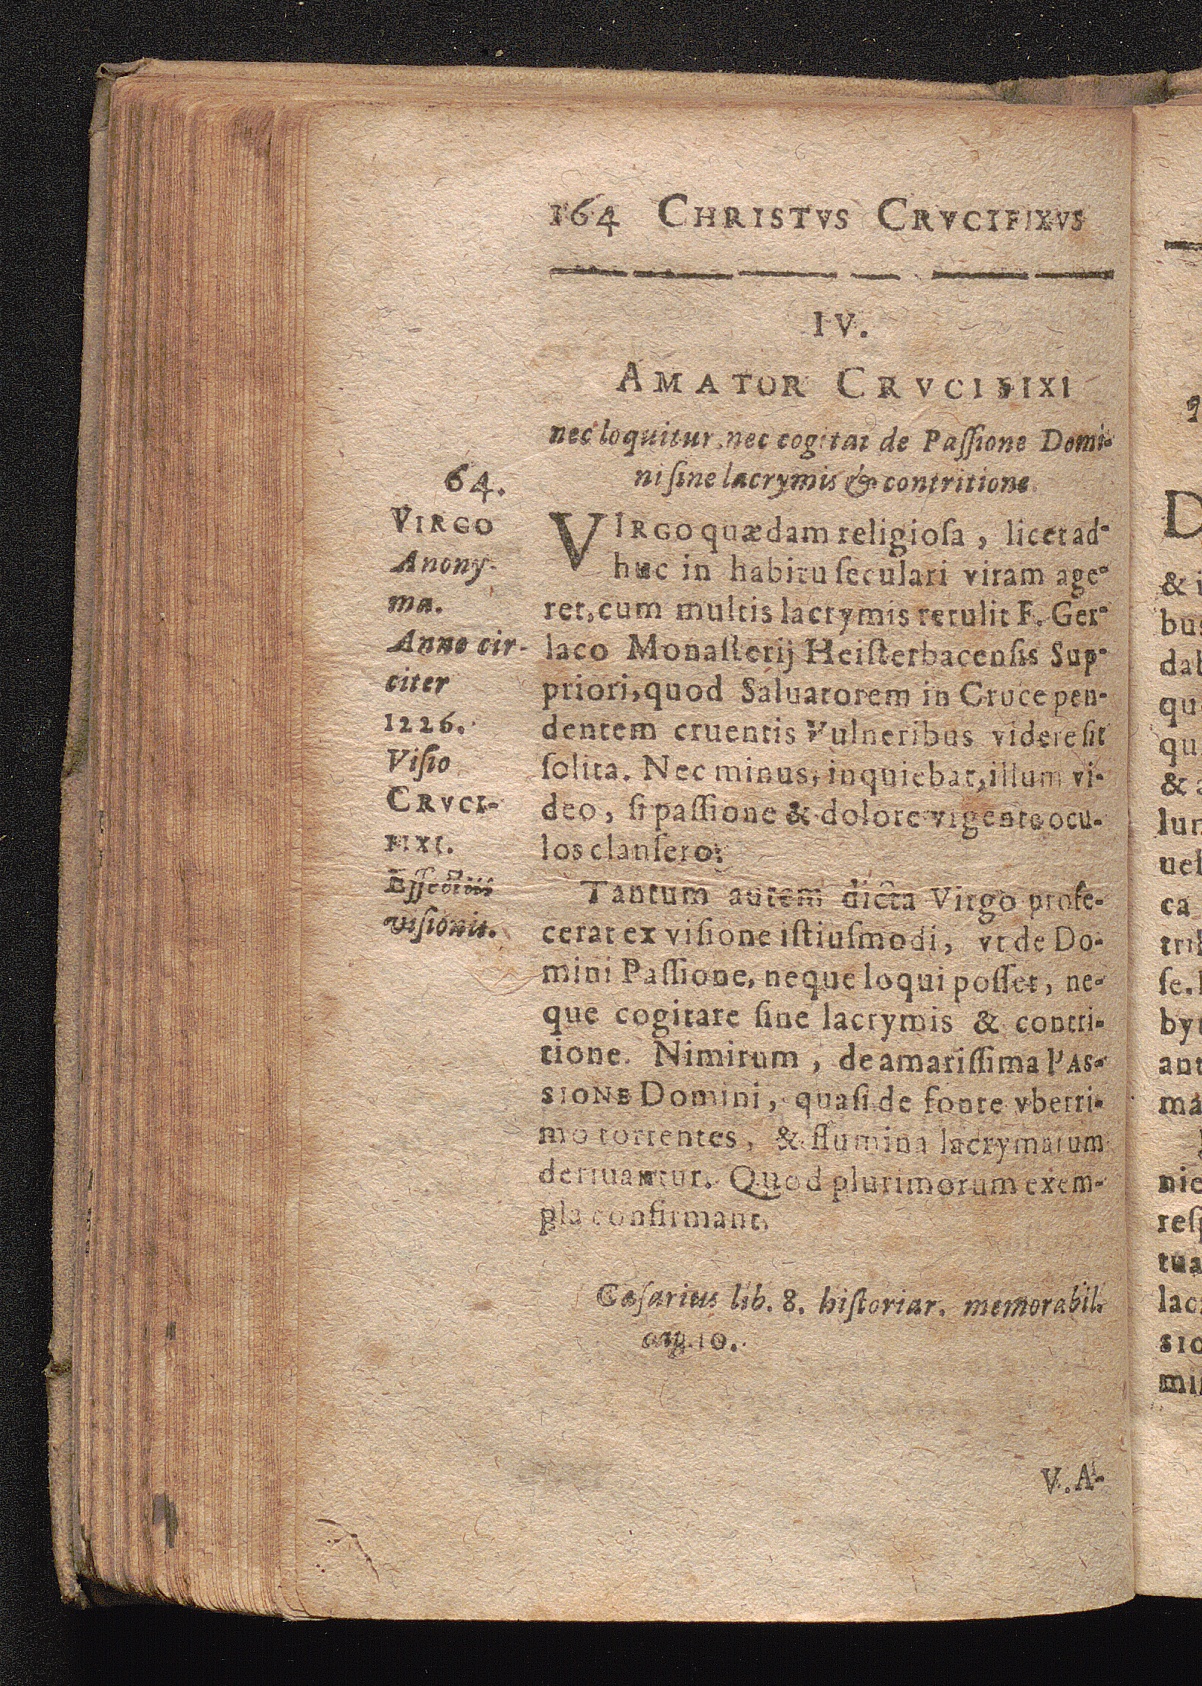 164 CHRISTVS CRVCIFIXVS
IV.
AMATOR CRVCIFIXI
nec loquitur, nec cogitat de Paſſione Domi-
ni ſine lacrymis & contritione.
64.
VIRGO
Anony-
ma.
Anno cir-
citer
1226.
Viſio
CRVCI-
FIXI.
Effectus
viſionis.
VIRGO quædam religioſa, licet ad-
huc in habitu ſeculari vitam age-
ret, cum multis lacrymis retulit F. Ger-
laco Monaſterij Heiſterbacenſis Sup-
priori, quod Saluatorem in Cruce pen-
dentem cruentis Vulneribus videre ſit
ſolita. Nec minus, inquiebat, illum vi-
deo, ſi paſſione & dolore vrgente ocu-
los clauſero.
Tantum autem dicta Virgo profe-
cerat ex viſione iſtiuſmodi, vt de Do-
mini Paſſione, neque loqui poſſet, ne-
que cogitare ſine lacrymis & contri-
tione. Nimirum, de amariſſima PAS-
SIONE Domini, quaſi de fonte vberri-
mo torrentes, & flumina lacrymarum
deriuantur. Quod plurimorum exem-
pla confirmant.
Cæſarius lib. 8. hiſtoriar. memorabil.
cap. 10.
V. A-
D
& i
bus
dab
qu
& a
lun
uel
ca
trib
ſe.
ant
nie
reſp
tua
lac
SIO